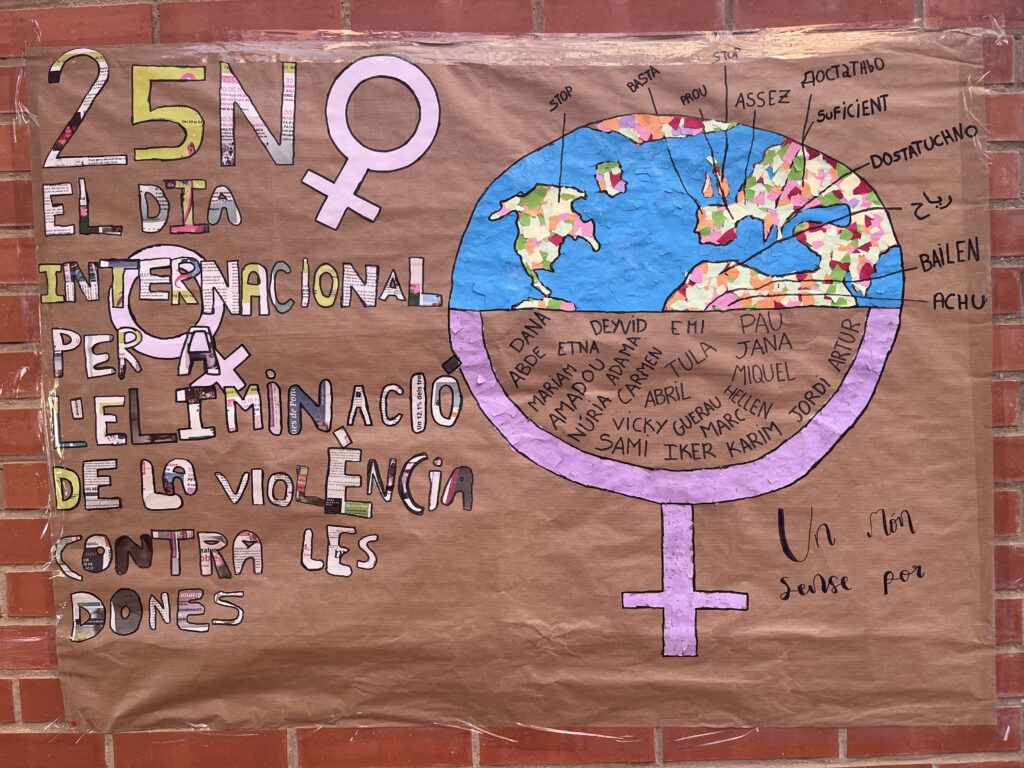 25N
EL DIA
INTERNACIONAL
PER A
L'ELIMINACIO
DE LA VIOLÈNCIA
CONTRA LES
DONES
STOP
BASTA
PROU
STOP
ASSEZ
ДОСТАТНЬО
SUFICIENT
DOSTATUCHNO
BAILEN
ACHU
DANA
ABDE
DEYVID
EMI
PAU
ETNA
ADAMA
JANA
ARTUR
MARIAM
AMADOU
CARMEN
TULA
MIQUEL
NÚRIA
ABRIL
HELLEN
JORDI
VICKY
GUERAU
MARC
SAMI
IKER
KARIM
Un Món
sense por